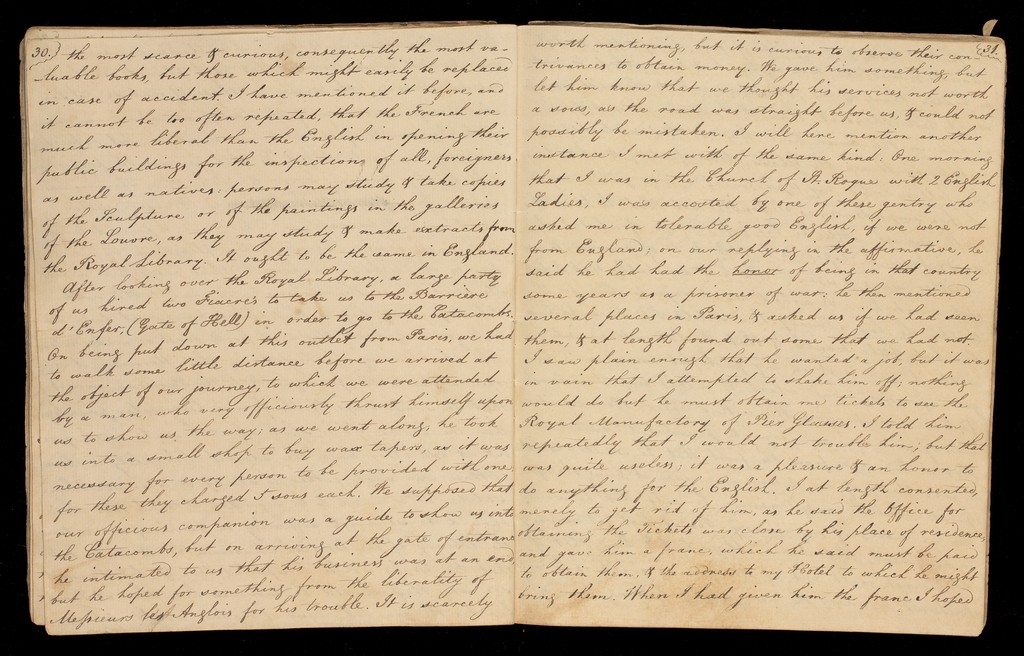 30.) the most scarce & curious, consequently the most va-
luable books, but those which might easily be replaced
in case of accident. I have mentioned it before, and
it cannot be too often repeated, that the French are
much more liberal than the English in opening their
public buildings for the inspection of all, foreigners
as well as natives: persons may study & take copies
of the Sculpture or of the paintings in the galleries
of the Louvre, as they may study & make extracts from
the Royal Library. It ought to be the same in England.
After looking over the Royal Library, a large party
of us hired two Fiacres to take us to the Barrière
d'Enfer, (Gate of Hell) in order to go to the Catacombs.
On being put down at this outlet from Paris, we had
to walk some little distance before we arrived at
the object of our journey, to which we were attended
by a man, who very officiously thrust himself upon
us to show us the way; as we went along, he took
us into a small shop to buy wax tapers, as it was
necessary for every person to be provided with one;
for these they charged 5 sous each. We supposed that
our officious companion was a guide to show us into
the Catacombs, but on arriving at the gate of entrance
he intimated to us that his business was at an end,
but he hoped for something from the liberality of
Messieurs les Anglois for his trouble. It is scarcely
(31.
worth mentioning, but it is curious to observe their con-
trivances to obtain money. We gave him something, but
let him know that we thought his services not worth
a sous, as the road was straight before us, & could not
possibly be mistaken. I will here mention another
instance I met with of the same kind: One morning
that I was in the Church of St. Roque with 2 English
Ladies, I was accosted by one of these gentry who
asked me in tolerable good English, if we were not
from England; on our replying in the affirmative, he
said he had had the honor of being in that country
some years as a prisoner of war: he then mentioned
several places in Paris, & asked us if we had seen
them, & at length found out some that we had not.
I saw plain enough that he wanted a job, but it was
in vain that I attempted to shake him off; nothing
would do but he must obtain me tickets to see the
Royal Manufactory of Pier Glasses. I told him
repeatedly that I would not trouble him, but that
was quite useless; it was a pleasure & an honor to
do anything for the English. I at length consented,
merely to get rid of him, as he said the Office for
obtaining the Tickets was close by his place of residence,
and gave him a franc, which he said must be paid
to obtain them, & the address to my Hotel to which he might
bring them. When I had given him the franc I hoped